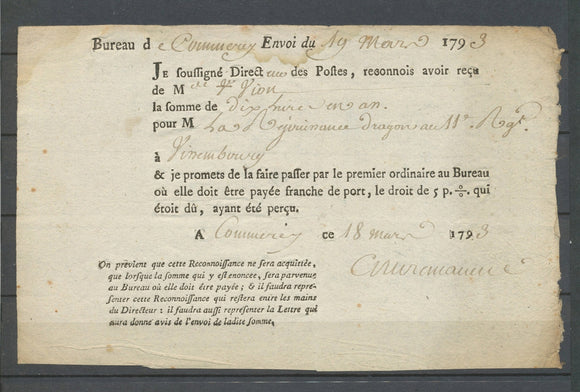 Bureau d e Commercy Envoi du 19 Mars 1793
JE soussigné Directeur des Postes, reconnois avoir reçu
de M de Vion
la somme de dix livres en
pour M La dragon au 11e Regt
à
& je promets de la faire passer par le premier ordinaire au Bureau
où elle doit être payée franche de port, le droit de 5 p. % qui
étoit dû, ayant été perçu.
A Commercy ce 18 mars 1793
On prévient que cette Reconnoissance ne sera acquittée,
que lorsque la somme qui y est enoncée, sera parvenue
au Bureau où elle doit être payée; & il faudra repré-
senter cette Reconnoissance qui restera entre les mains
du Directeur: il faudra aussi représenter la Lettre qui
aura donné avis de l'envoi de ladite somme.